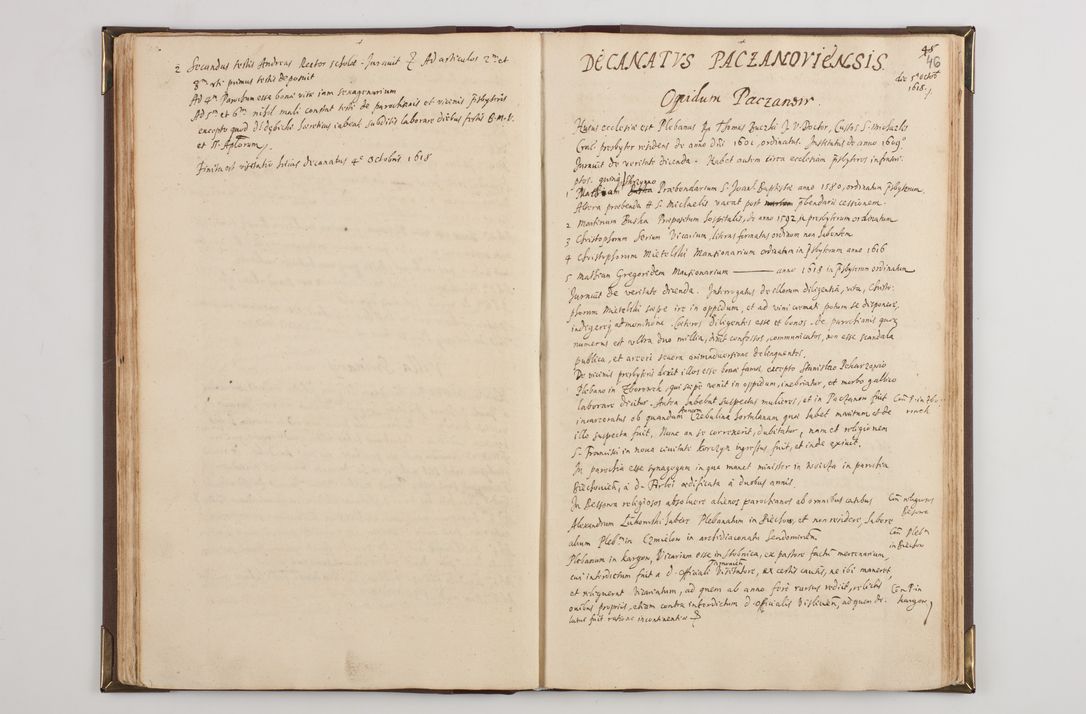 2 Secundus testis Andreas Rector scholæ. Iurauit Ad articulos 2m et
3m uti primus testis deposuit
Ad 4m Parochum esse bonæ vitæ iam sexagenarium
Ad 5m et 6m nihil mali constat testi de parochianis et vicinis pręsbyteris
excepto quod laborare diebus festis B.M.V.
et SS. Aplorum.
Finita est visitatio huius decanatus 4o Octobris 1618
DECANATVS PACZANOVIENSIS.
45
46
die 5a Octob
1618.
Oppidum Paczanow.
Huius ecclesiæ est Plebanus Thomas I. V. Doctor, Custos S. Michaelis
Crac. Presbyter residens de anno Dni 1601, ordinatus. Institutus de anno 1609o.
Iurauit de veritate dicenda. Habet autem circa ecclesiam pręsbyteros infrascri-
ptos. quinq
1 Præbendarium S. Joan. Baptistæ anno 1580, ordinatum pręsbyterum.
Altera præbenda S. Michaelis vacat post pbendarii cessionem.
2 Martinum Buska Præpositum hospitalis, de anno 1592 in presbyterum ordinatum
3 Christophorum Vicarium, literas formatas ordinum non habentem
4 Christophorum Mietelski Mansionarium ordinatum in pręsbyterum anno 1616
5 Mathiam Gregoridem Mansionarium anno 1618 in pręsbyterum ordinatum
Iurauit de veritate dicenda. Interrogatus de illorum diligentia, vita, Christo-
phorum Mietelski sæpe ire in oppidum, et ad vini cremati potum se disponere,
indigereq admonitione. Cæteros diligentes esse et bonos. De parochianis quor
numerus est vltra duo millia, dixit confessos, communicatos, non esse scandala
publica, et arceri seuera animaduersione delinquentes.
De vicinis presbyteris dixit illos esse bonæ famæ, excepto Stanislao
Plebano in qui sæpe venit in oppidum, inebriatur, et morbo gallico
laborare dicitur. Antea habebat suspectas mulieres, et in Paczanow fuit
incarceratus ob quandam Cebulina hortulanam quæ habet maritum et de
illo suspecta fuit. Nunc an se correxerit, dubitatur, nam et religionem
S. Francisci in noua ciuitate Korczyn ingressus fuit, et inde exiuit.
In parochia esse synagogam in qua manet minister in in parochia
ædificata à duobus annis.
In Bessowa religiosos absoluere alienos parochianos ab omnibus casibus
Alexandrum habere Plebanatum in Biechow, et non residere, habere
alium Plebm in Cmielow in archidiaconatu Sendomirien.
Plebanum in Kargow, Vicarium esse in Stobnica, ex pastore factu mercenarium,
cui interdictum fuit a d. officiali ex certis causis, ne ibi maneret,
et resignarat Vicariatum, ad quem ab anno ferè rursus rediit, relictis
ouibus proprijs, etiam contra interdictum d. officialis Vislicien, ad quem de-
latus fuit ratione incontinentiæ
Con religiosos
Bessowæ
Con Plebm
in Biechow
Con P. in
Kargow